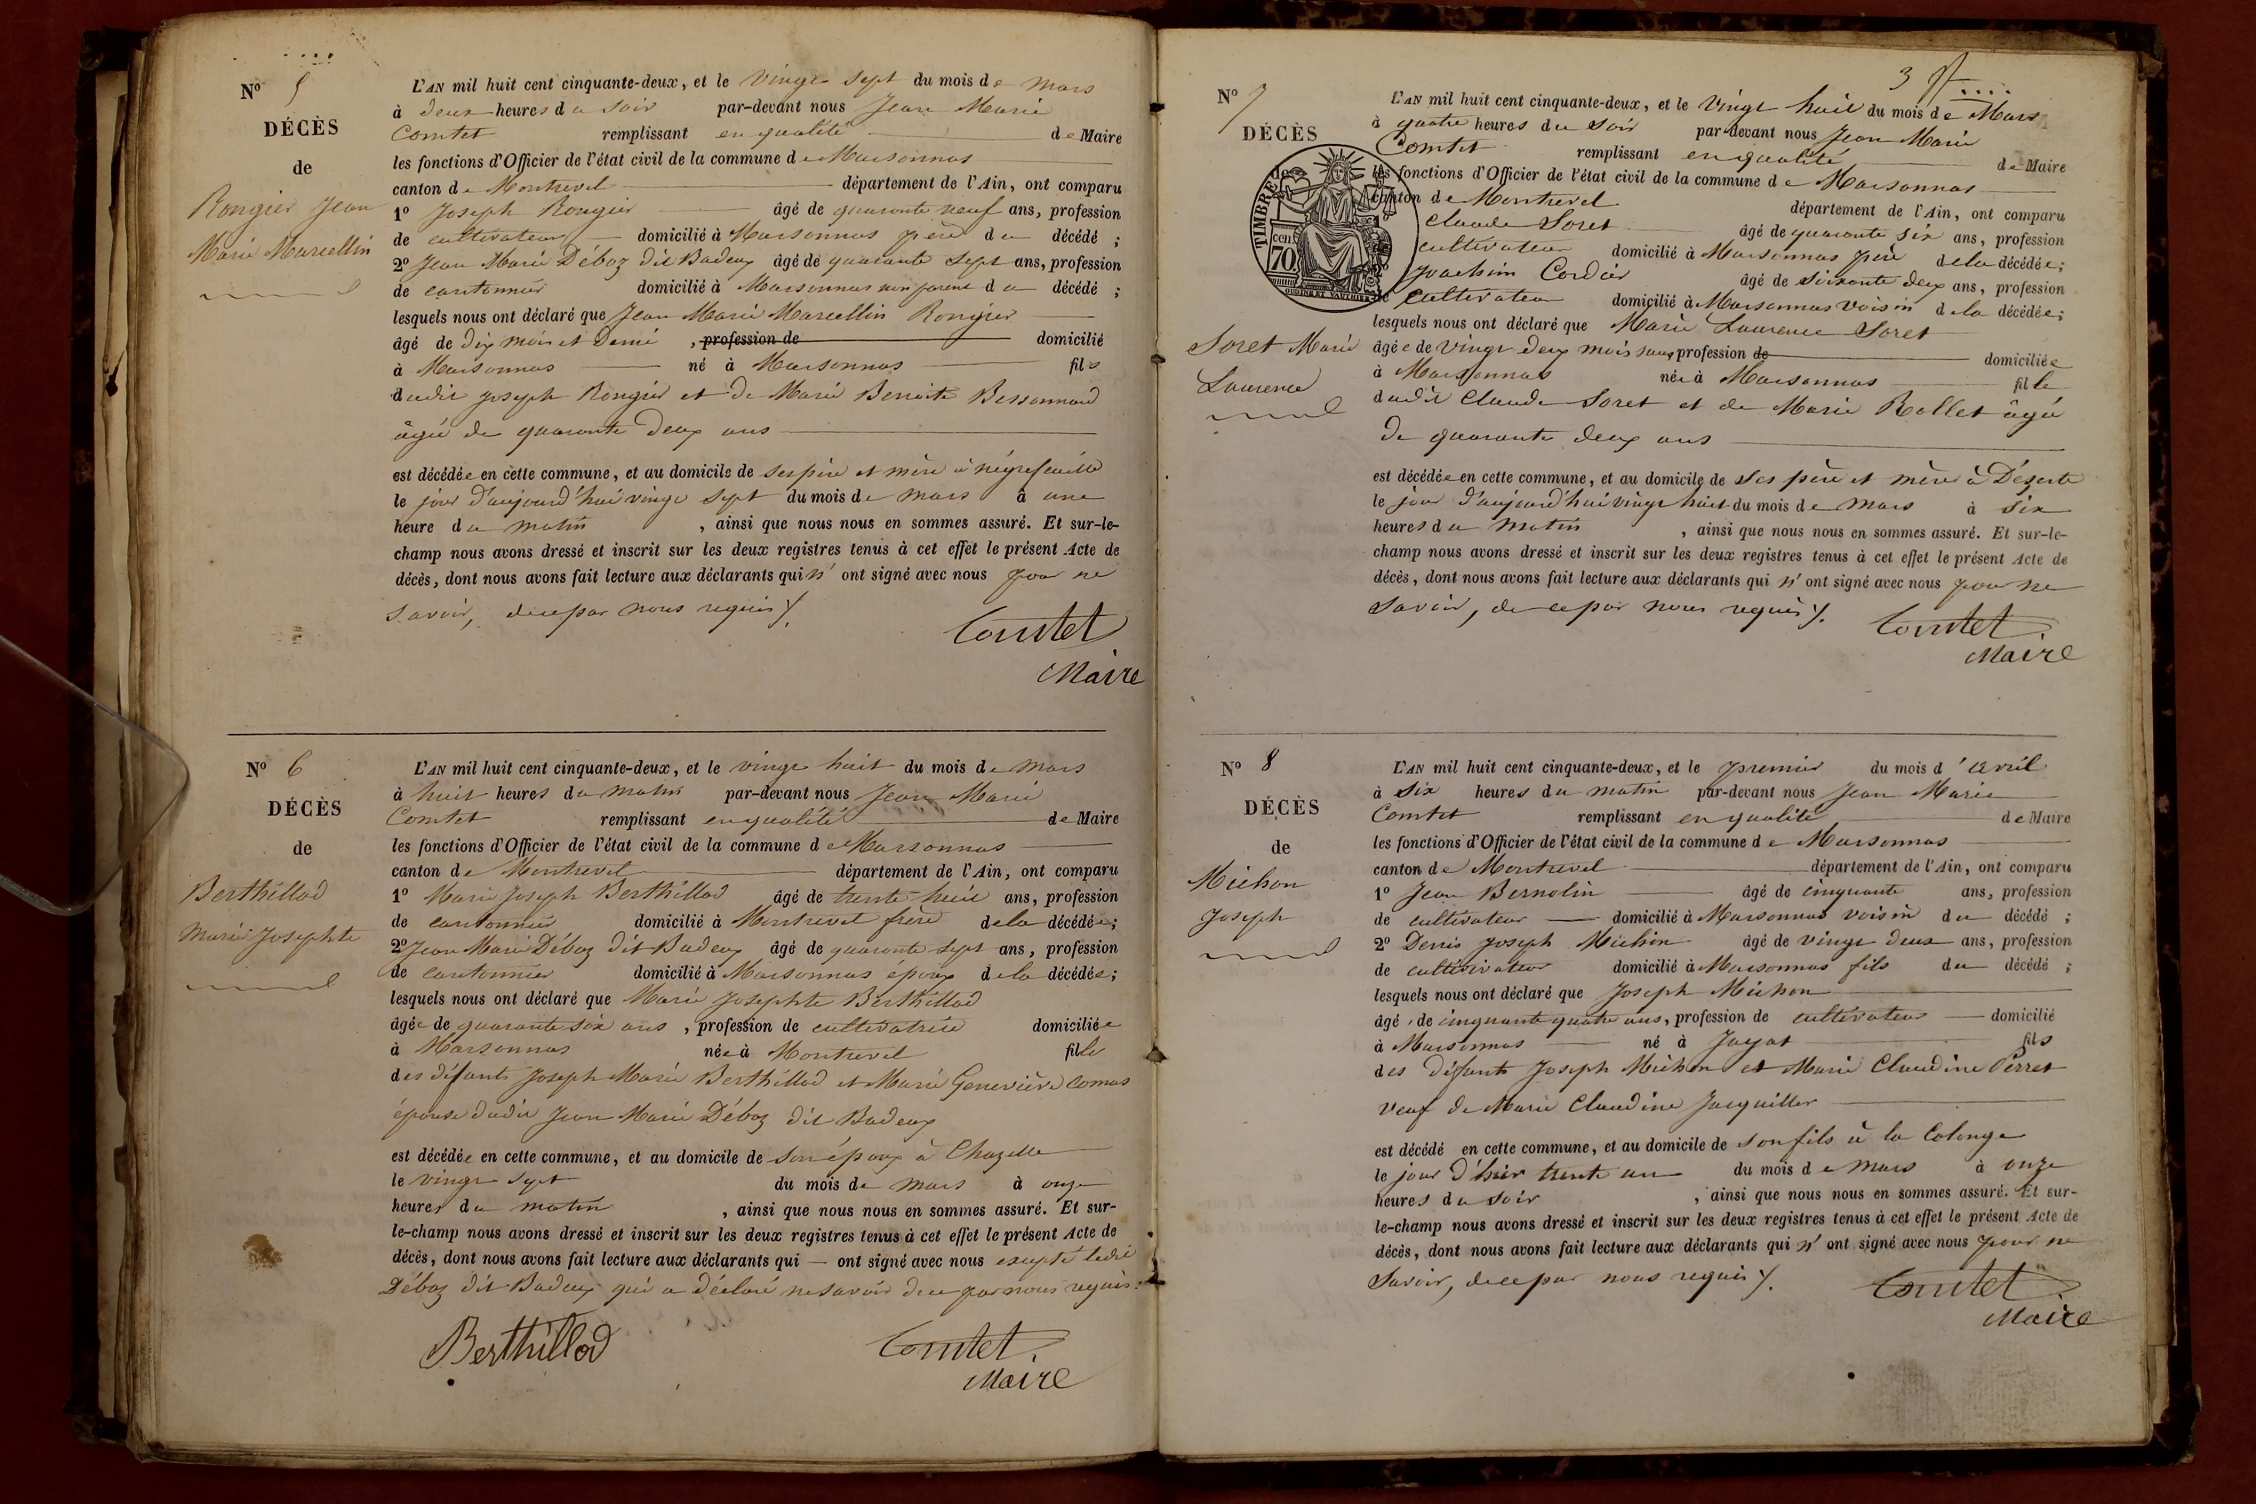 Nº 5
DÉCÈS
de
Rongier Jean
Marie Marcellin
L'AN mil huit cent cinquante-deux, et le vingt sept du mois de mars
à deux heures du soir par-devant nous Jean Marie
Comtet remplissant en qualité de Maire
les fonctions d'Officier de l'état civil de la commune de Marsonnas
canton de Montrevel département de l'Ain, ont comparu
1º Joseph Rongier âgé de quarante neuf ans, profession
de cultivateur domicilié à Marsonnas père du décédé ;
2º Jean Marie Déboz dit Badoux âgé de quarante sept ans, profession
de cantonnier domicilié à Marsonnas non parent du décédé ;
lesquels nous ont déclaré que Jean Marie Marcellin Rongier
âgé de dix mois et demi , profession de domicilié
à Marsonnas né à Marsonnas fils
dudit Joseph Rongier et de Marie Benoite Bessonnard
âgée de quarante deux ans
est décédée en cette commune, et au domicile de ses père et mère à négrefeuille
le jour d'aujourd'hui vingt sept du mois de mars à une
heure du matin , ainsi que nous nous en sommes assuré. Et sur-le-
champ nous avons dressé et inscrit sur les deux registres tenus à cet effet le présent Acte de
décès, dont nous avons fait lecture aux déclarants qui n' ont signé avec nous pour ne
savoir, de ce par nous requis /.
Comtet
Maire
Nº 6
DÉCÈS
de
Berthillod
Marie Josephte
L'AN mil huit cent cinquante-deux, et le vingt huit du mois de mars
à huit heures du matin par-devant nous Jean Marie
Comtet remplissant en qualité de Maire
les fonctions d'Officier de l'état civil de la commune de Marsonnas
canton de Montrevel département de l'Ain, ont comparu
1º Marie Joseph Berthillod âgé de trente huit ans, profession
de cantonnier domicilié à Montrevel frère de la décédée;
2º Jean Marie Déboz dit Badoux âgé de quarante sept ans, profession
de cantonnier domicilié à Marsonnas époux de la décédée;
lesquels nous ont déclaré que Marie Josephte Berthillod
âgée de quarante six ans , profession de cultivatrice domiciliée
à Marsonnas née à Montrevel fille
des défunts Joseph Marie Berthillod et Marie Geneviève Comas
épouse dudit Jean Marie Déboz dit Badoux
est décédée en cette commune, et au domicile de son époux à Chazelle
le vingt sept du mois de mars à onze
heures du matin , ainsi que nous nous en sommes assuré. Et sur-
le-champ nous avons dressé et inscrit sur les deux registres tenus à cet effet le présent Acte de
décès, dont nous avons fait lecture aux déclarants qui — ont signé avec nous excepté ledit
Déboz dit Badoux qui a déclaré ne savoir de ce par nous requis.
Berthillod
Comtet
Maire
3
Nº 7
DÉCÈS
de
TIMBRE
70
cen.
Soret Marie
Laurence
L'AN mil huit cent cinquante-deux, et le vingt huit du mois de Mars
à quatre heures du soir par-devant nous Jean Marie
Comtet remplissant en qualité de Maire
les fonctions d'Officier de l'état civil de la commune de Marsonnas
canton de Montrevel département de l'Ain, ont comparu
Claude Soret âgé de quarante six ans, profession
cultivateur domicilié à Marsonnas père de la décédée;
2º Joachim Cordier âgé de soixante deux ans, profession
de cultivateur domicilié à Marsonnas voisin de la décédée;
lesquels nous ont déclaré que Marie Laurence Soret
âgée de vingt deux mois sans profession de domiciliée
à Marsonnas née à Marsonnas fille
dudit Claude Soret et de Marie Rollet âgée
de quarante deux ans
est décédée en cette commune, et au domicile de ses père et mère à Déserte
le jour d'aujourd'hui vingt huit du mois de mars à six
heures du matin , ainsi que nous nous en sommes assuré. Et sur-le-
champ nous avons dressé et inscrit sur les deux registres tenus à cet effet le présent Acte de
décès, dont nous avons fait lecture aux déclarants qui n' ont signé avec nous pour ne
savoir, de ce par nous requis /.
Comtet
Maire
Nº 8
DÉCÈS
de
Michon
Joseph
L'AN mil huit cent cinquante-deux, et le premier du mois d'avril
à six heures du matin par-devant nous Jean Marie
Comtet remplissant en qualité de Maire
les fonctions d'Officier de l'état civil de la commune de Marsonnas
canton de Montrevel département de l'Ain, ont comparu
1º Jean Bernolin âgé de cinquante ans, profession
de cultivateur domicilié à Marsonnas voisin du décédé ;
2º Denis Joseph Michon âgé de vingt deux ans, profession
de cultivateur domicilié à Marsonnas fils du décédé ;
lesquels nous ont déclaré que Joseph Michon
âgé de cinquante quatre ans, profession de cultivateur domicilié
à Marsonnas né à Jayat fils
des défunts Joseph Michon et Marie Claudine Perret
veuf de Marie Claudine Jacquiller
est décédé en cette commune, et au domicile de son fils à la Colonge
le jour d'hier trente un du mois de mars à onze
heures du soir , ainsi que nous nous en sommes assuré. Et sur-
le-champ nous avons dressé et inscrit sur les deux registres tenus à cet effet le présent Acte de
décès, dont nous avons fait lecture aux déclarants qui n' ont signé avec nous pour ne
savoir, de ce par nous requis /.
Comtet
Maire